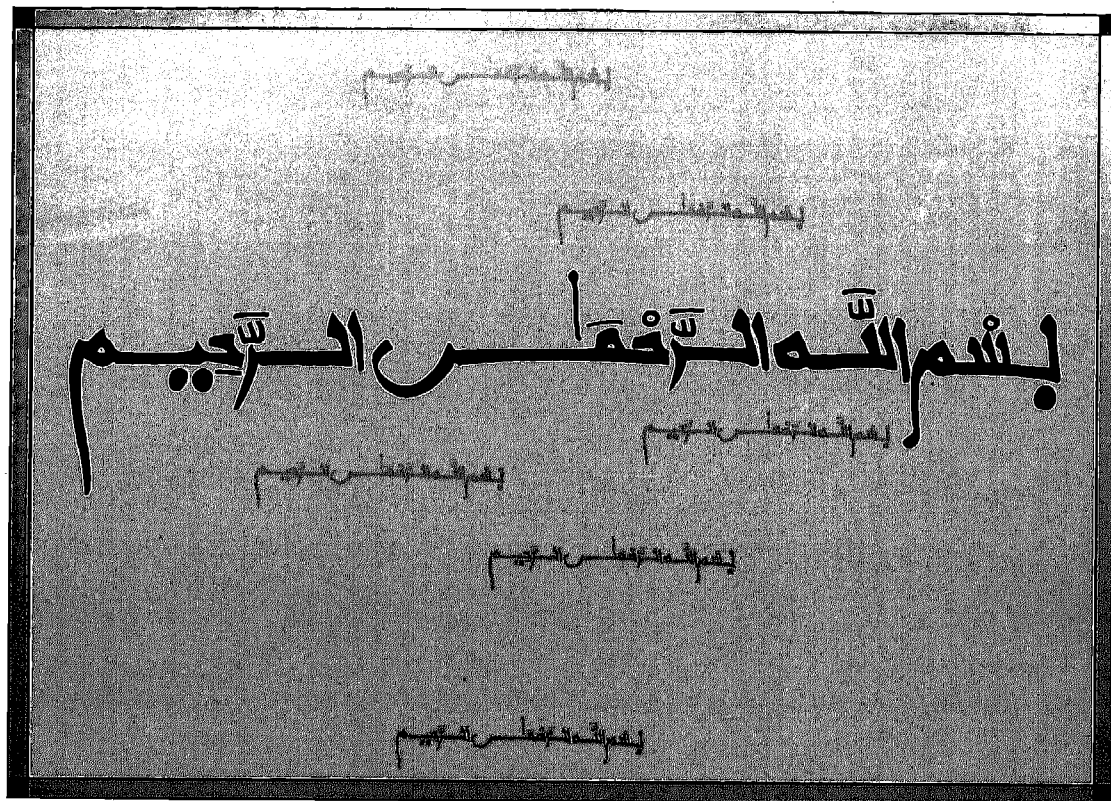 بسم الله الرحمن الرحيم
بسم الله الرحمن الرحيم
بسْم اللَّه الرَّحْمَٰن الرَّحِيم
بسم الله الرحمن الرحيم
بسم الله الرحمن الرحيم
بسم الله الرحمن الرحيم
بسم الله الرحمن الرحيم